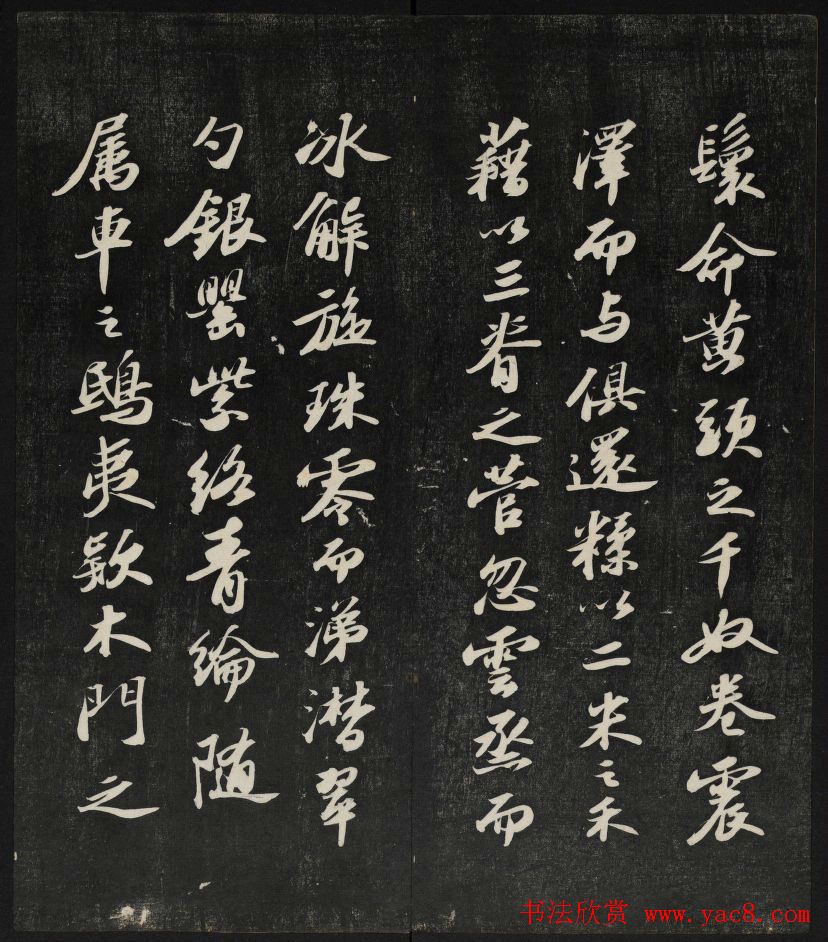 鬟命黄頭之千奴卷震
澤而与俱還糅以二米之禾
藉以三脊之菅忽雲烝而
冰解旋珠零而涕潸翠
勺銀罌紫絡青綸随
属車之鴟夷款木門之
书法欣赏 www.yac8.com